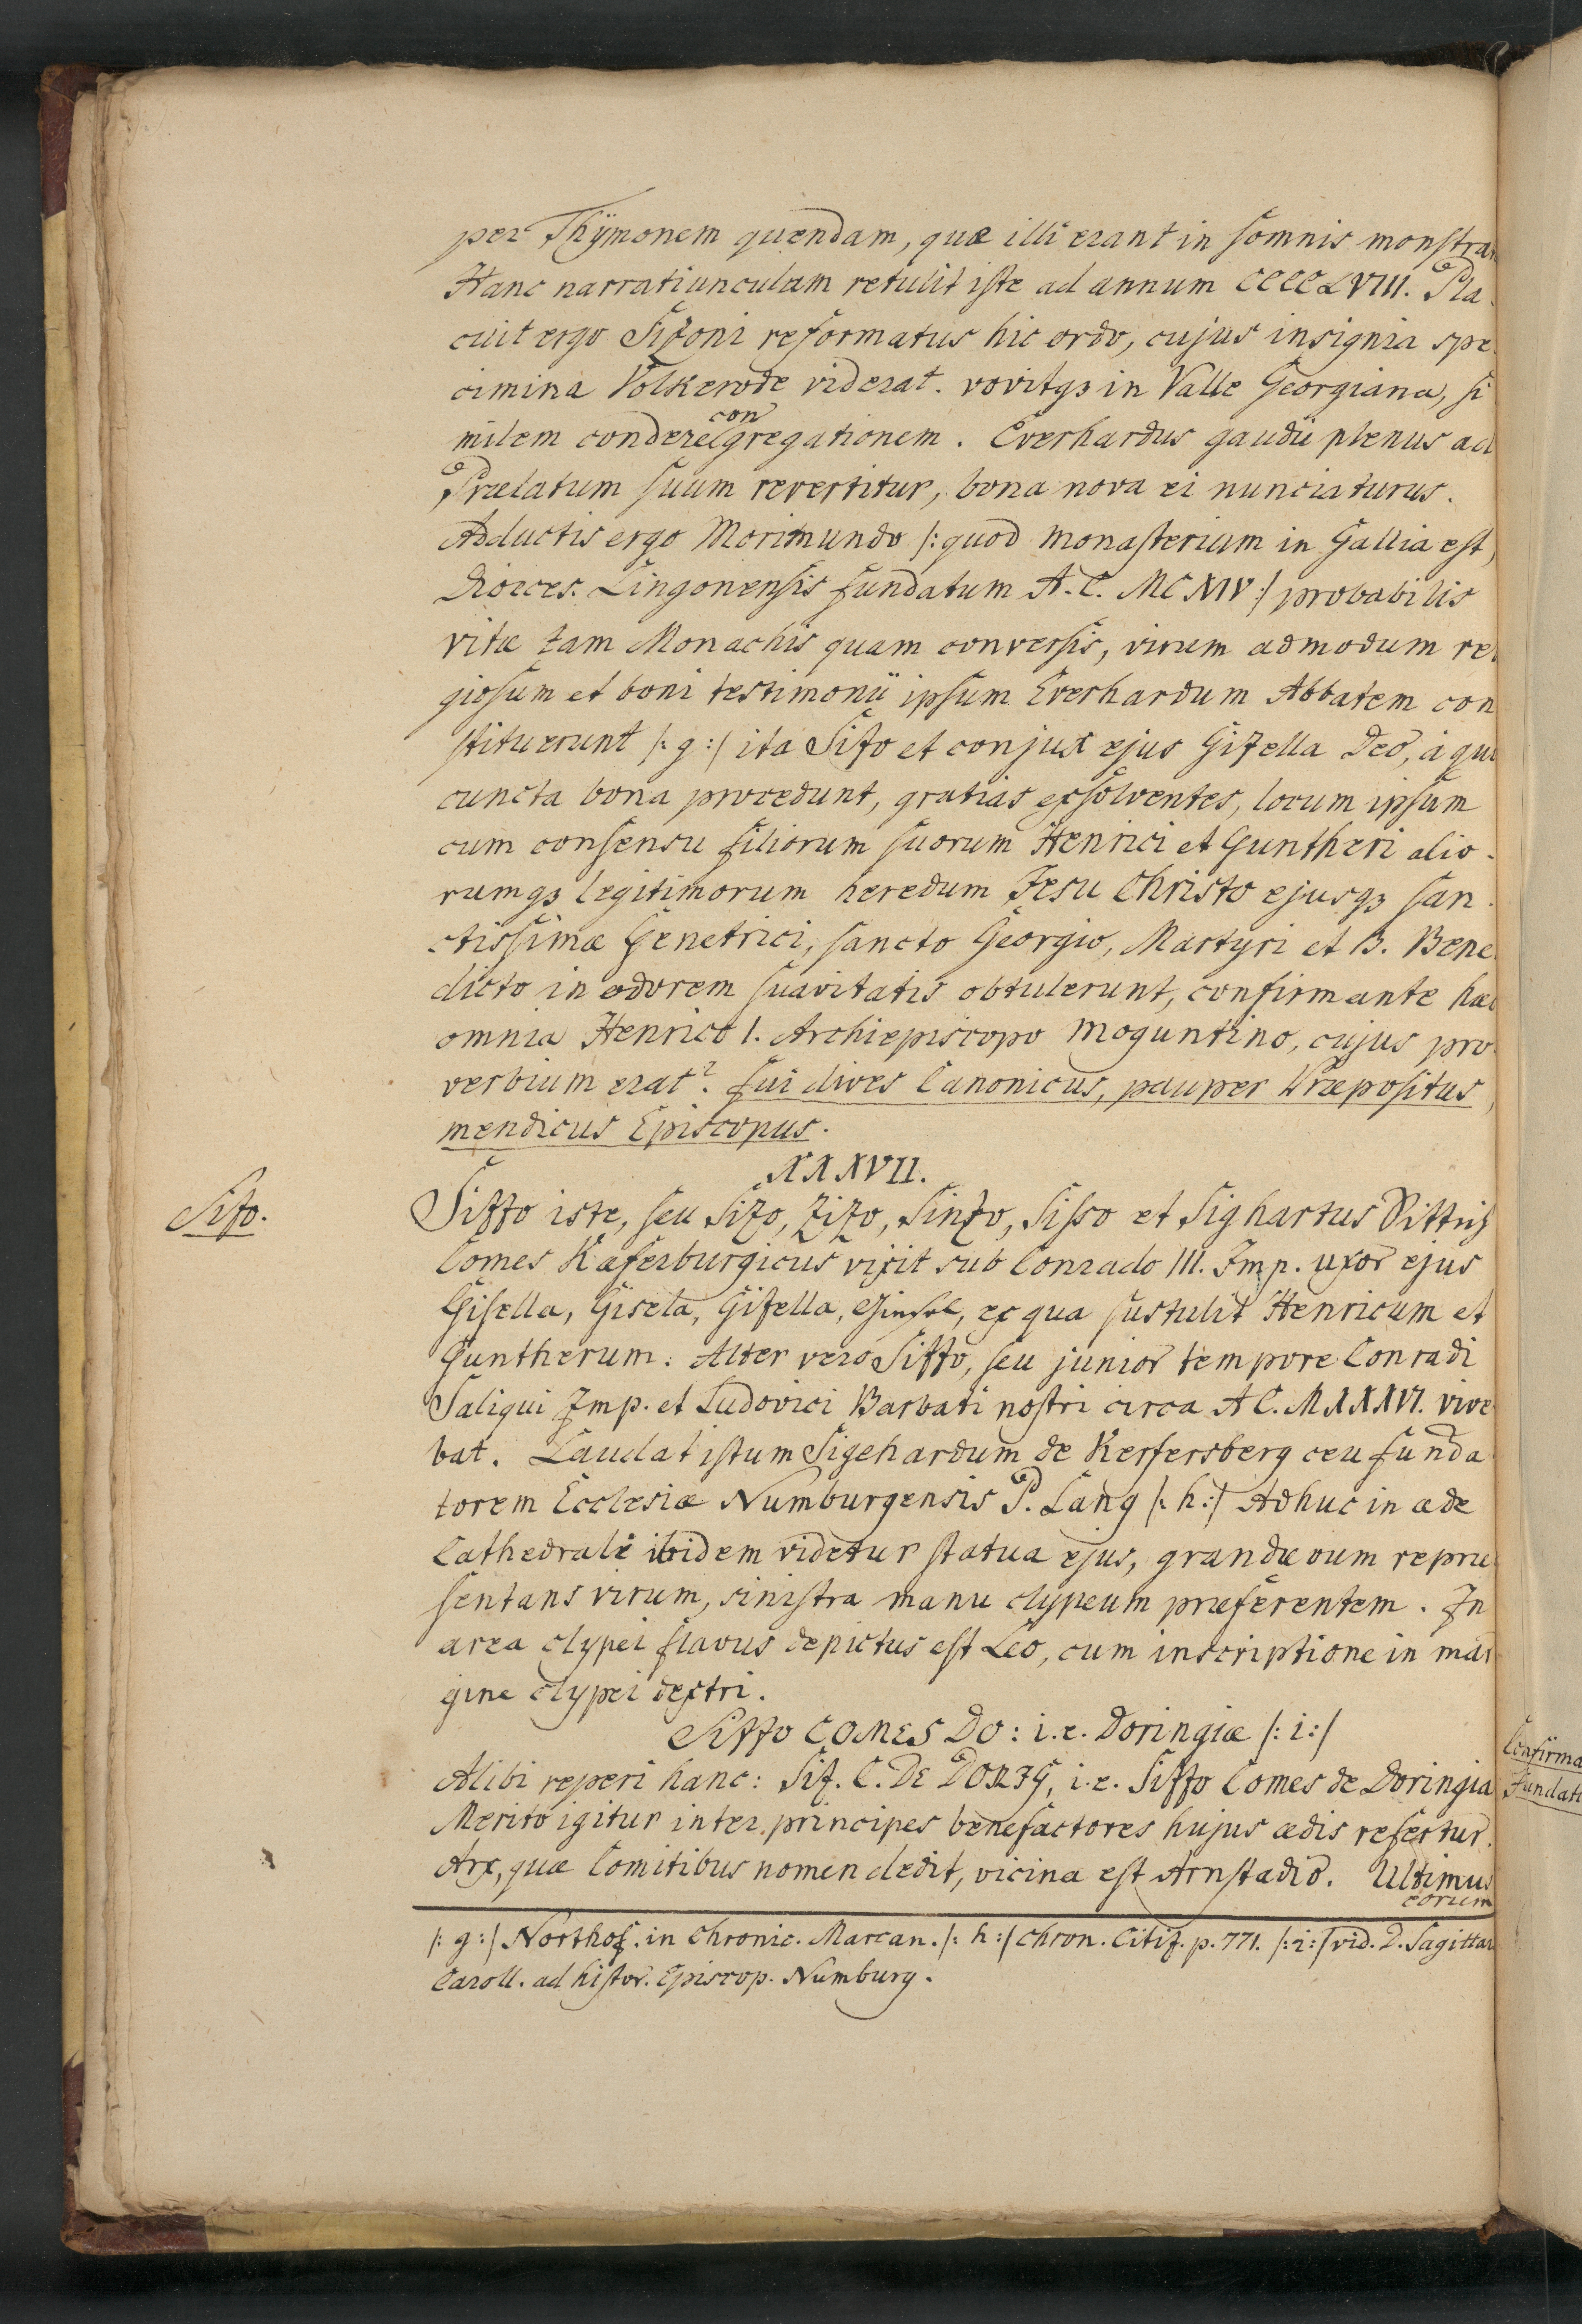 per Thÿmonem quendam, quæ illi erant in somnis monstra
Hanc narratiunculam retulit iste ad annum CCCCLVIII. Pla
cuit ergo Sizoni reformatus hic ordo, cujus insignia spe
cimina Volkerode viderat. vovitqꝫ in Valle Georgiana, si
con
milem condere gregationem. Everhardus gaudii plenus ad
Prælatum suum revertitur, bona nova ei nunciaturus.
Adductis ergo Morimundo |: quod monasterium in Gallia est,
Dioeces. Lingonensis fundatum A. C. MCXIV :| probabilis
vitæ tam Monachis quam conversis, virum admodum re
giosum et boni testimonii ipsum Everhardum Abbatem con
stituerunt |: g :| ita Sizo et conjux ejus Gizella Deo, à quo
cuncta bona procedunt, gratias exsolventes, locum ipsum
cum consensu filiorum suorum Henrici et Guntheri alio-
rumqꝫ legitimorum heredum Jesu Christo ejusqꝫ san-
ctissimæ Genetrici, sancto Georgio, Martyri et B. Bene
dicto in odorem suavitatis obtulerunt, confirmante hæc
omnia Henrico I. Archiepiscopo Moguntino, cujus pro
verbium erat: fui dives Canonicus, pauper Præpositus,
mendicus Episcopus.
XXXVII.
Sizo.
Sizzo iste, seu Sizo, Zizo, Sinzo, Sisso et Sighartus Dittrich
Comes Kæferburgicus vixit sub Conrado III. Imp. uxor ejus
Gisella, Gisela, Gizella, ex qua sustulit Henricum et
Guntherum. Alter vero Sizzo, seu junior tempore Conradi
Saliqui Imp. et Ludovici Barbati nostri circa A C. MXXXVI. vive
bat. Laudat istum Sigehardum de Kerfersberg ceu funda
torem Ecclesiæ Numburgensis P. Lang |: h :| Adhuc in æde
Cathedrale ibidem videtur statua ejus, grandævum repræ
sentans virum, sinistra manu clypeum præferentem. In
area clypei flavus depictus est Leo, cum inscriptione in mar
gine clypei dextri.
Sizzo COMES DO: i.e. Doringiæ |: i :|
Alibi reperi hanc: Siz. C. DE DORIG, i.e. Sizzo Comes de Doringia
Merito igitur inter principes benefactores hujus ædis refertur.
Arx, quæ Comitibus nomen dedit, vicina est Arnstadio. Ultimus
eorum
|: g :| Northof. in Chronic. Marcan. |: h :| Chron. Citiz. p. 771. |: i :| vid. D. Sagittar
Caroll. ad histor. Episcop. Numburg.
Confirma
fundati